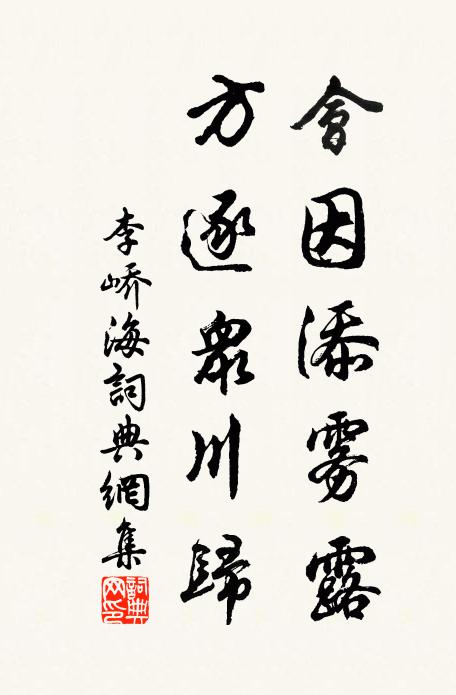 會因添雾露
方逐衆川歸
李峤海詞典網集
詞典网印